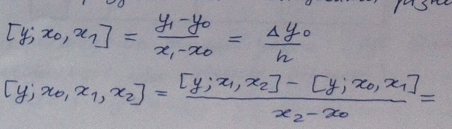 [y; x₀, x₁] = (y₁ - y₀)/(x₁ - x₀) = Δy₀/h
[y; x₀, x₁, x₂] = ([y; x₁, x₂] - [y; x₀, x₁])/(x₂ - x₀) =